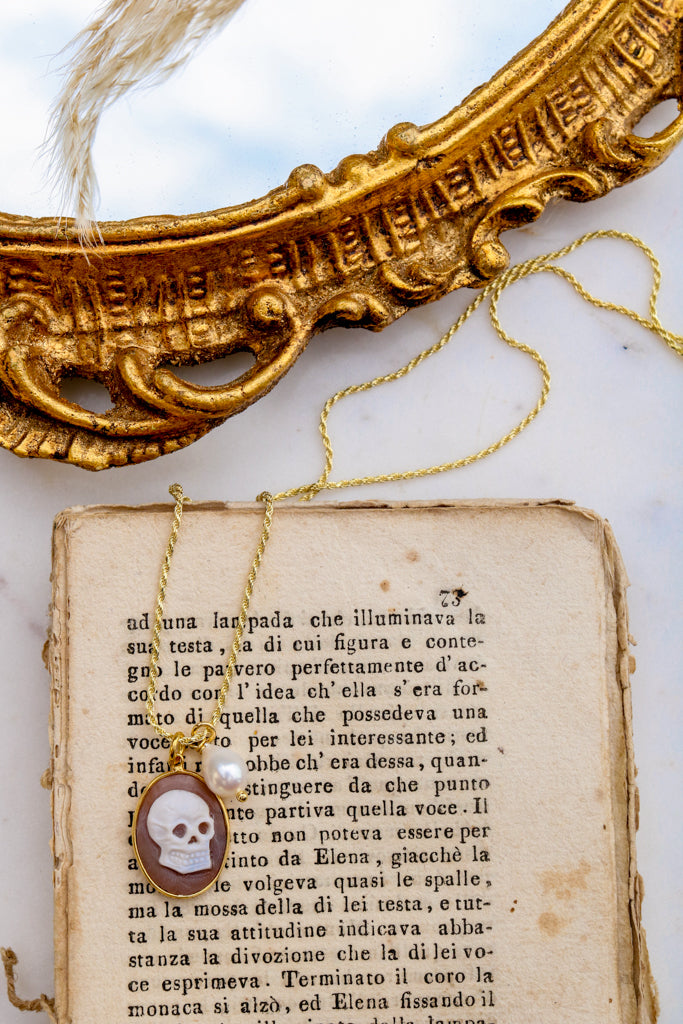 73
ad una lampada che illuminava la
sua testa, la di cui figura e conte-
gno le parvero perfettamente d'ac-
cordo con l'idea ch'ella s'era for-
mato di quella che possedeva una
voce per lei interessante; ed
ch'era dessa, quan-
stinguere da che punto
partiva quella voce. Il
non poteva essere per
da Elena, giacchè la
le volgeva quasi le spalle,
ma la mossa della di lei testa, e tut-
ta la sua attitudine indicava abba-
stanza la divozione che la di lei vo-
ce esprimeva. Terminato il coro la
monaca si alzò, ed Elena fissando il